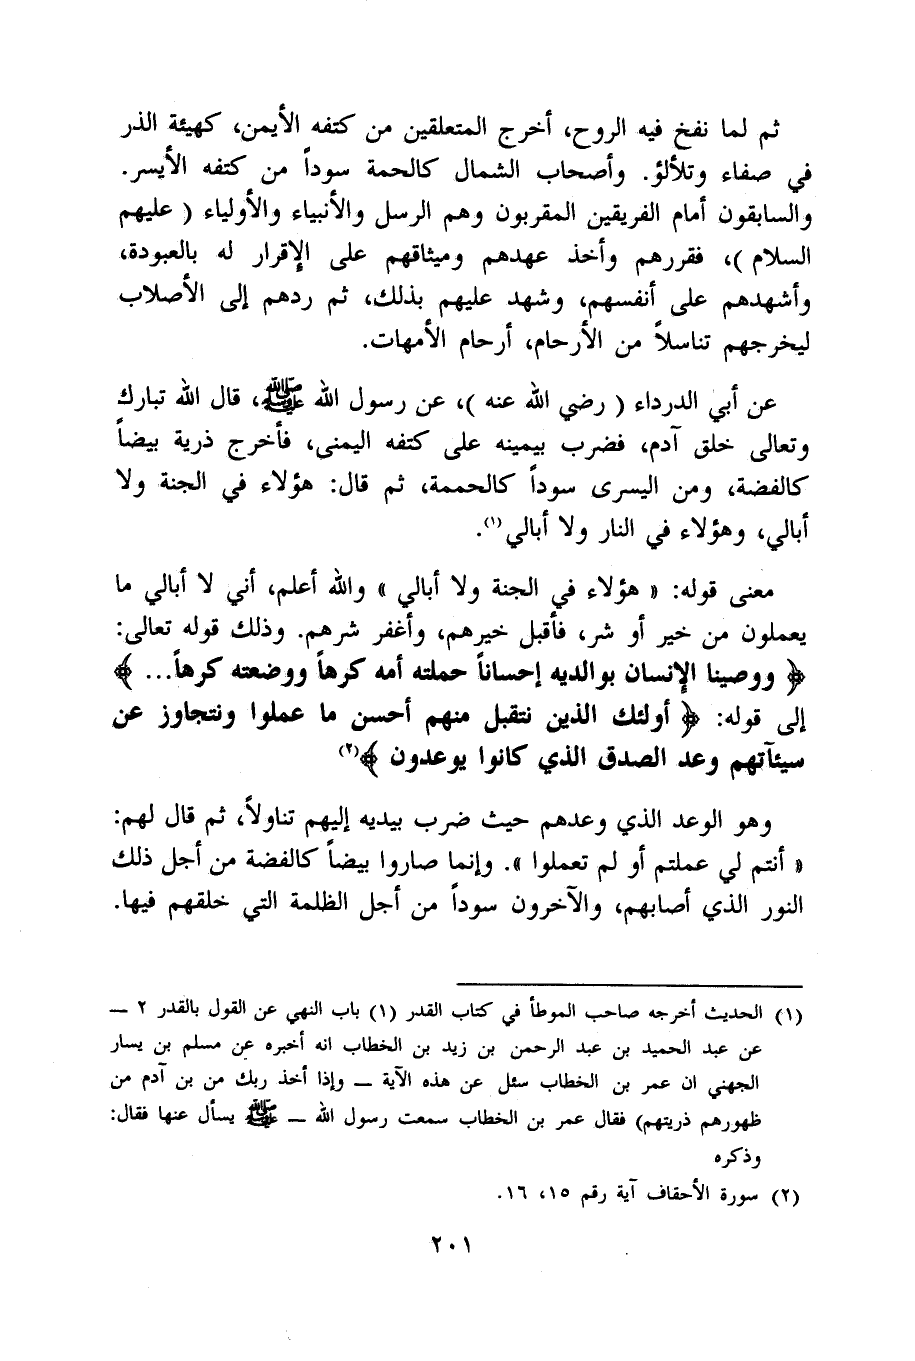 ثم لما نفخ فيه الروح، أخرج المتعلقين من كتفه الأيمن، كهيئة الذر
في صفاء وتلألؤ. وأصحاب الشمال كالحمة سوداً من كتفه الأيسر.
والسابقون أمام الفريقين المقربون وهم الرسل والأنبياء والأولياء ( عليهم
السلام )، فقررهم وأخذ عهدهم وميثاقهم على الإقرار له بالعبودة،
وأشهدهم على أنفسهم، وشهد عليهم بذلك، ثم ردهم إلى الأصلاب
ليخرجهم تناسلاً من الأرحام، أرحام الأمهات.
عن أبي الدرداء ( رضي الله عنه )، عن رسول الله ﷺ، قال الله تبارك
وتعالى خلق آدم، فضرب بيمينه على كتفه اليمنى، فأخرج ذرية بيضاً
كالفضة، ومن اليسرى سوداً كالحممة، ثم قال: هؤلاء في الجنة ولا
أبالي، وهؤلاء في النار ولا أبالي(١).
معنى قوله: « هؤلاء في الجنة ولا أبالي » والله أعلم، أني لا أبالي ما
يعملون من خير أو شر، فأقبل خيرهم، وأغفر شرهم. وذلك قوله تعالى:
﴿ ووصينا الإنسان بوالديه إحساناً حملته أمه كرهاً ووضعته كرهاً... ﴾
إلى قوله: ﴿ أولئك الذين نتقبل منهم أحسن ما عملوا ونتجاوز عن
سيئآتهم وعد الصدق الذي كانوا يوعدون ﴾(٢)
وهو الوعد الذي وعدهم حيث ضرب بيديه إليهم تناولاً، ثم قال لهم:
« أنتم لي عملتم أو لم تعملوا ». وإنما صاروا بيضاً كالفضة من أجل ذلك
النور الذي أصابهم، والآخرون سوداً من أجل الظلمة التي خلقهم فيها.
(١) الحديث أخرجه صاحب الموطأ في كتاب القدر (١) باب النهي عن القول بالقدر ٢ —
عن عبد الحميد بن عبد الرحمن بن زيد بن الخطاب انه أخبره عن مسلم بن يسار
الجهني ان عمر بن الخطاب سئل عن هذه الآية — وإذا أخذ ربك من بن آدم من
ظهورهم ذريتهم) فقال عمر بن الخطاب سمعت رسول الله — ﷺ يسأل عنها فقال:
وذكره
(٢) سورة الأحقاف آية رقم ١٥، ١٦.
٢٠١